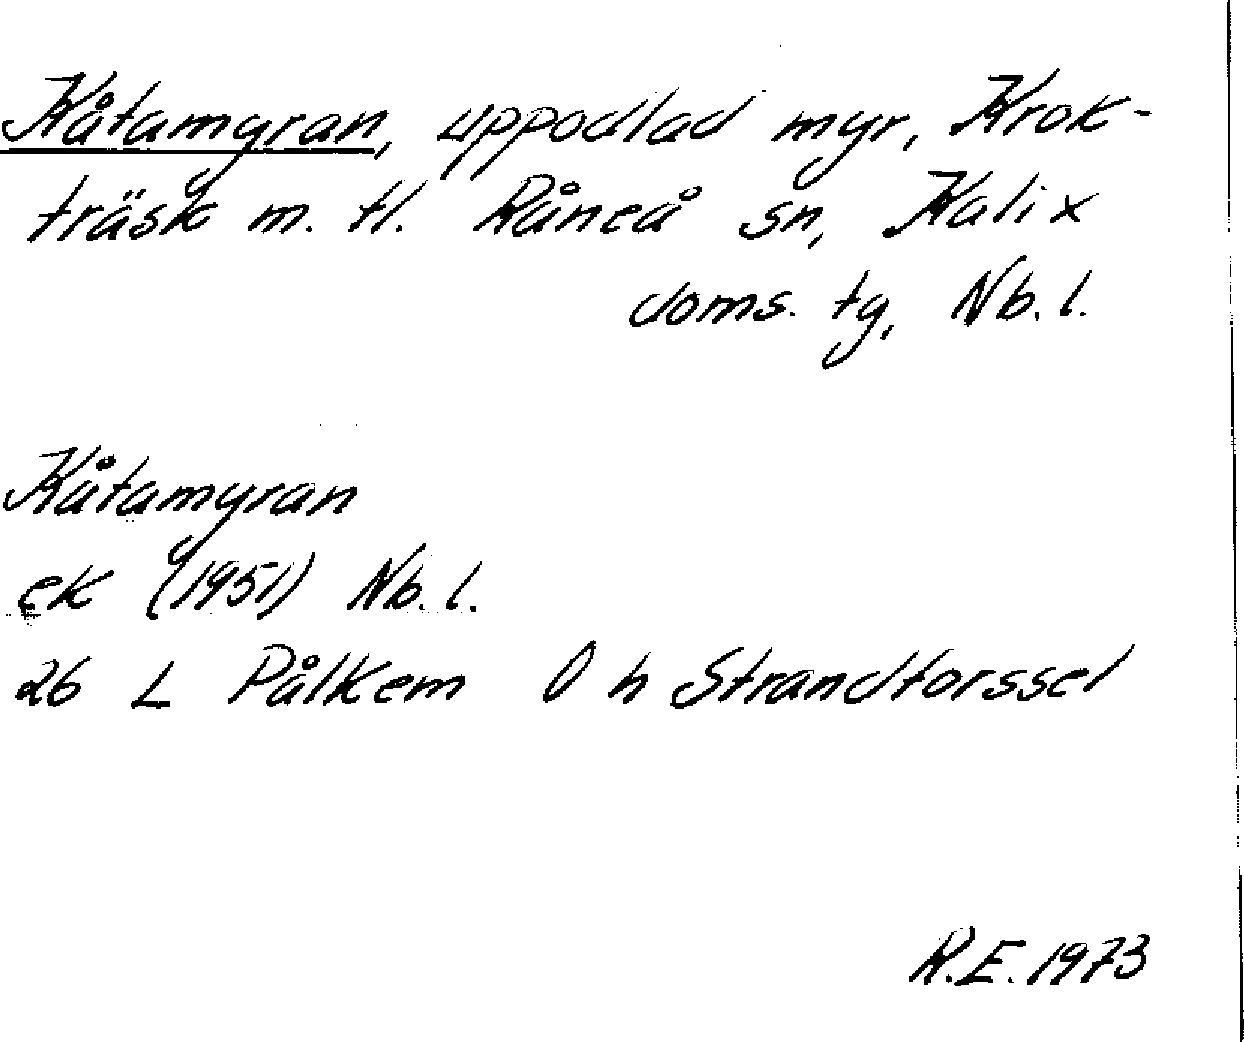 Kåtamyran, uppodlad myr, Krok-
träsk m. fl. Råneå sn, Kalix
doms. tg, Nb. l.
Kåtamyran
ek (1951) Nb. l.
26 L Pålkem O h Strandforssel
R.E. 1973